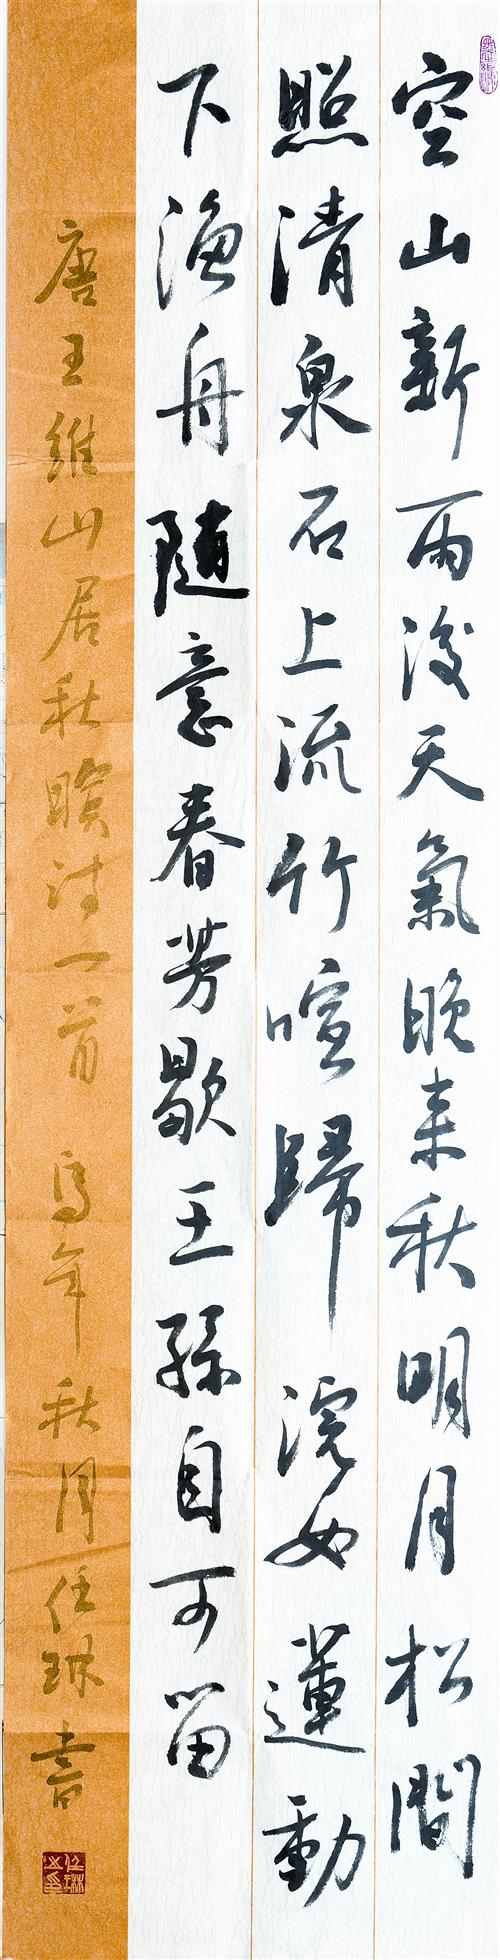 空山新雨後天氣晚来秋明月松間
照清泉石上流竹喧歸浣女蓮動
下漁舟随意春芳歇王孫自可留
唐王維山居秋暝诗一首 年秋月任琳書
任琳之印